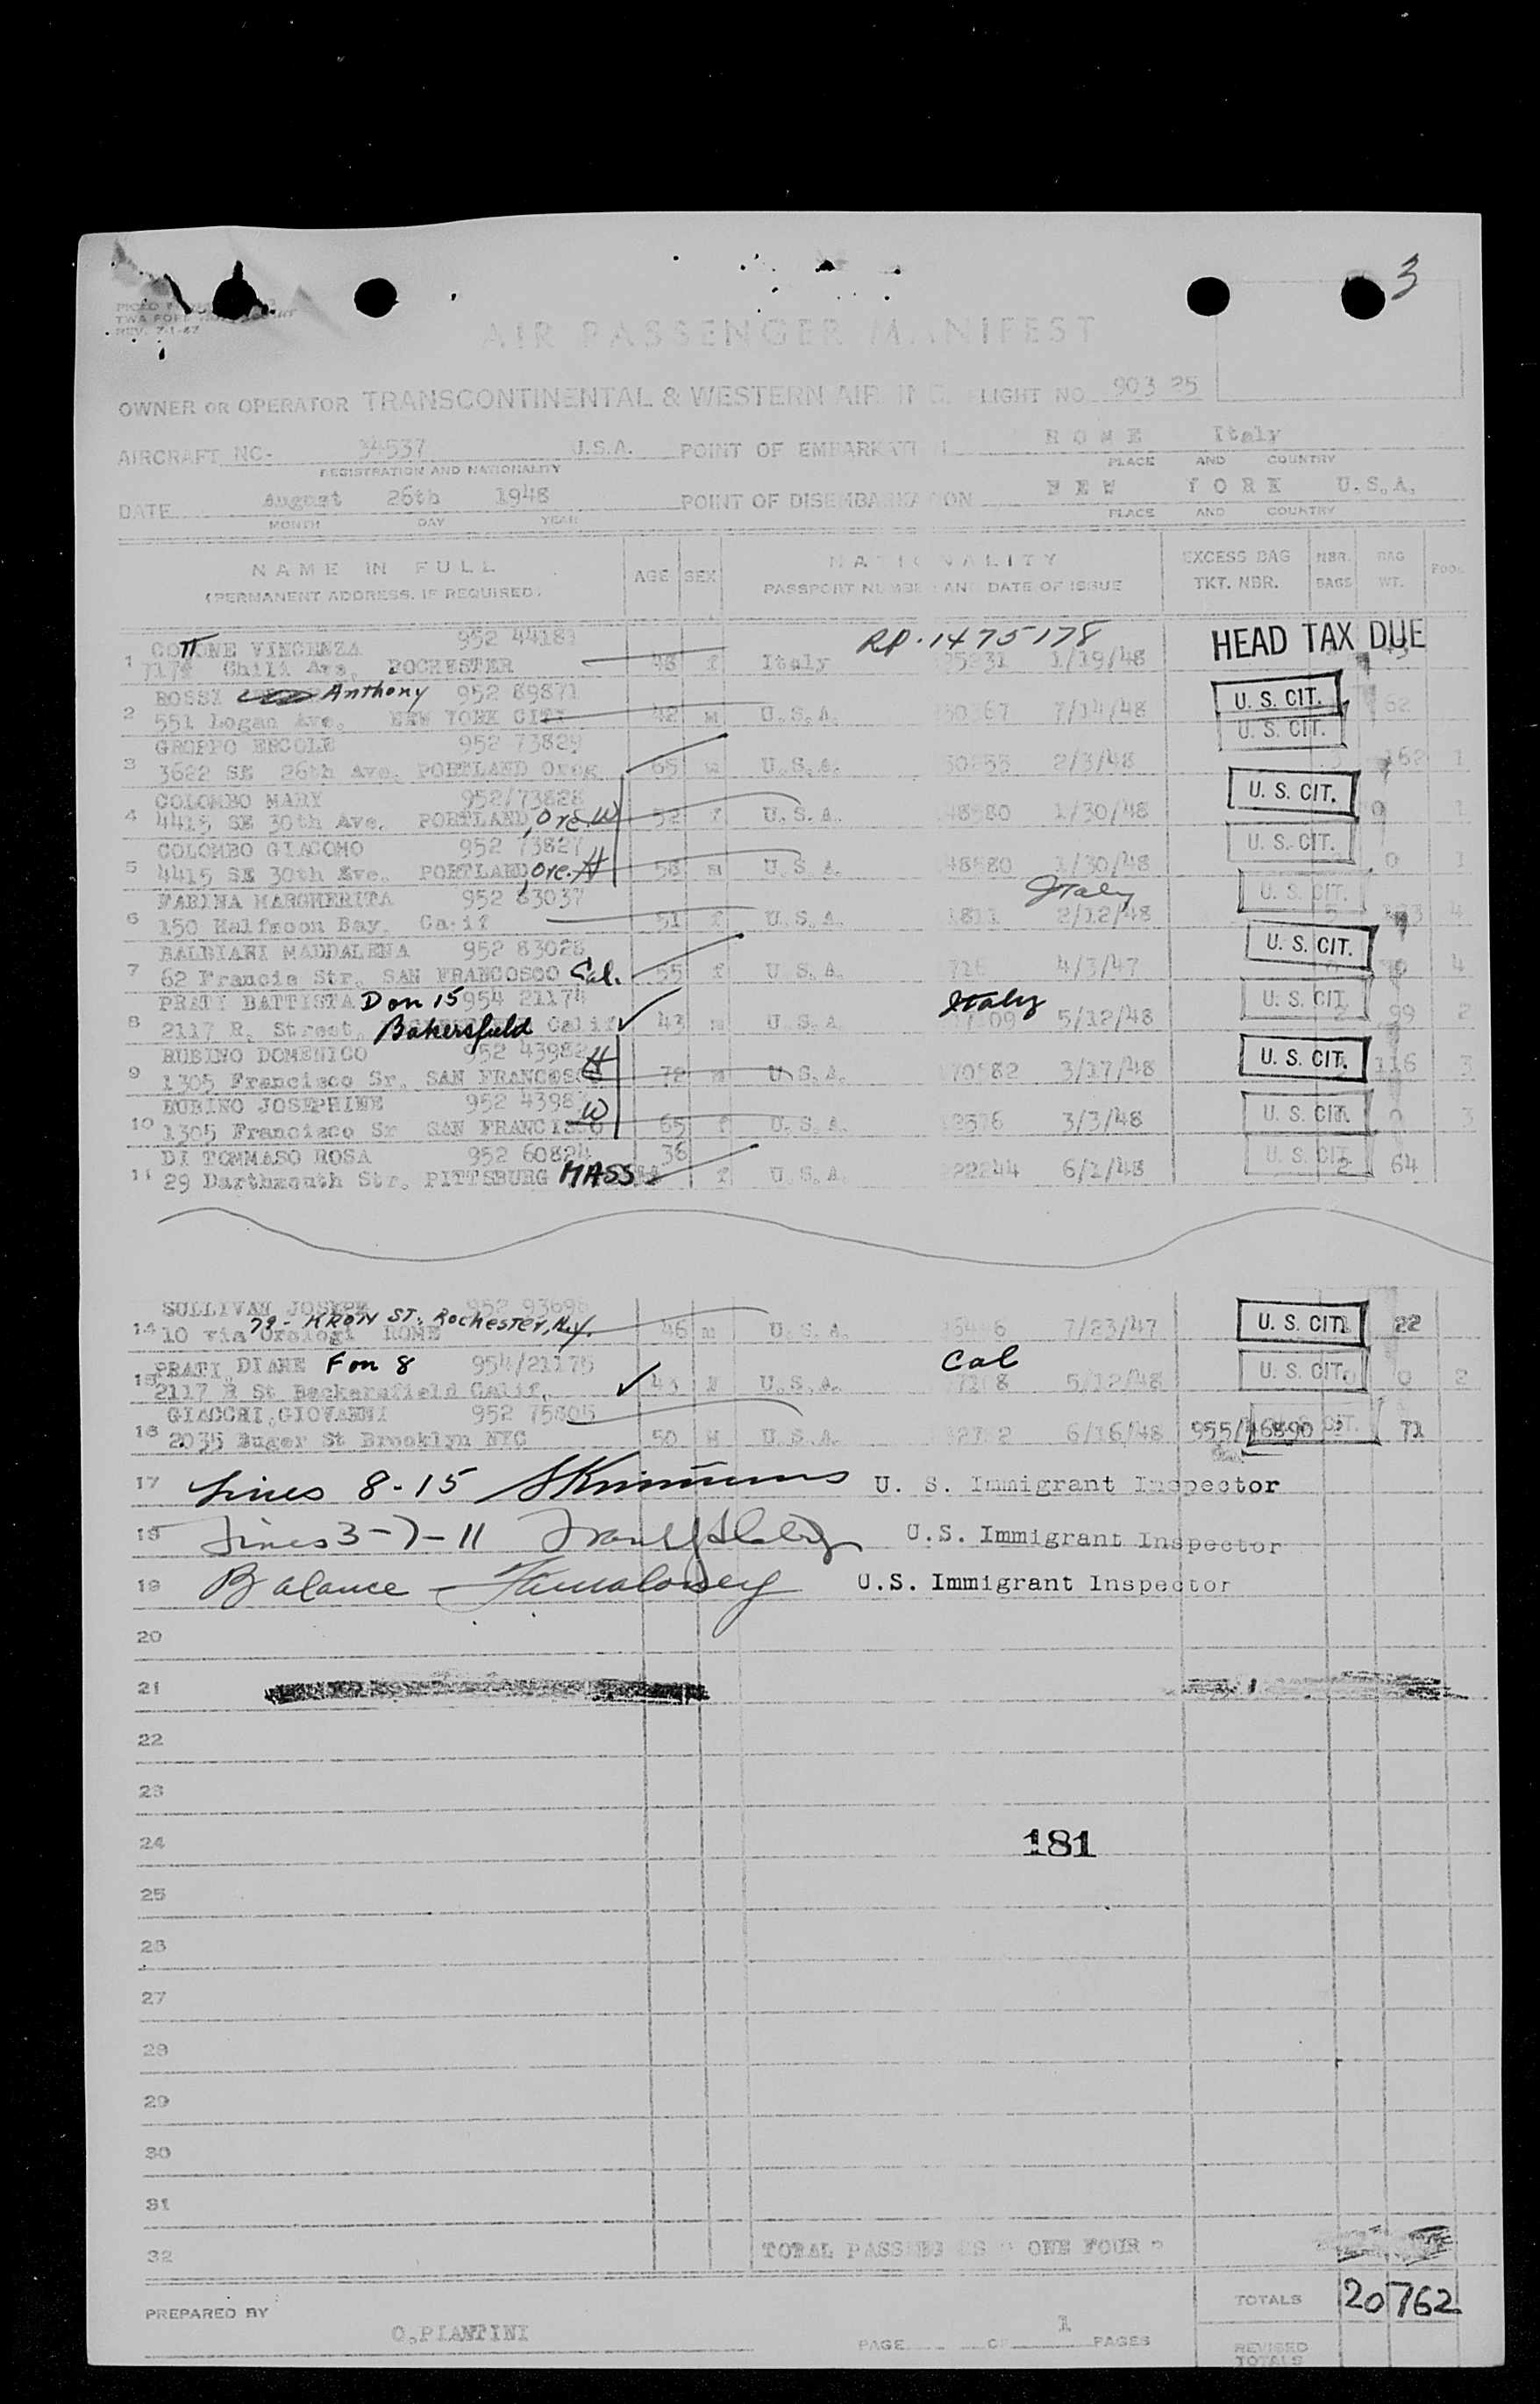 3
TWA FORM
REV. 7-1-47
AIR PASSENGER MANIFEST
OWNER OR OPERATOR TRANSCONTINENTAL & WESTERN AIR INC. FLIGHT NO. 903 25
AIRCRAFT NC- 34537 U.S.A. POINT OF EMBARKATION ROME Italy
REGISTRATION AND NATIONALITY PLACE AND COUNTRY
DATE August 26th 1948 POINT OF DISEMBARKATION NEW YORK U.S.A.
MONTH DAY YEAR PLACE AND COUNTRY
NAME IN FULL AGE SEX NATIONALITY EXCESS BAG NBR. BAG POOL
(PERMANENT ADDRESS, IF REQUIRED) PASSPORT NUMBER AND DATE OF ISSUE TKT. NBR. BAGS WT.
COTTONE VINCENZA 952 44181 RP. 1475178 HEAD TAX DUE
1 717½ Chili Ave. ROCHESTER 48 f Italy 1/19/48
ROSSI Anthony 952 89871 U. S. CIT.
2 551 Logan Ave. NEW YORK CITY 42 m U.S.A. 7/14/48 62
GROPPO ERCOLE 952 73829 U. S. CIT.
3 3622 SE 26th Ave. PORTLAND Oreg 65 m U.S.A. 50255 2/3/48 3 162 1
COLOMBO MARY 952/73828 U. S. CIT.
4 4415 SE 30th Ave. PORTLAND, Ore. W 52 f U.S.A. 48580 1/30/48 0 1
COLOMBO GIACOMO 952 73827 U. S. CIT.
5 4415 SE 30th Ave. PORTLAND, Ore. H 58 m U.S.A. 48580 1/30/48 0 1
FARINA MARGHERITA 952 83037 Italy U. S. CIT.
6 150 Halfmoon Bay. Calif 51 f U.S.A. 1811 2/12/48 5 4
BALBIANI MADDALENA 952 83028 U. S. CIT.
7 62 Francis Str. SAN FRANCOSCO Cal. 55 f U.S.A. 4/3/47 4
PRATI BATTISTA D on 15 954 21174 Italy U. S. CIT.
8 2117 R. Street, Bakersfield Calif 43 m U.S.A. 5/12/48 2 99 2
RUBINO DOMENICO 952 43982 H U. S. CIT.
9 1305 Francisco Sr. SAN FRANCOSCO 72 m U.S.A. 70582 3/17/48 116 3
RUBINO JOSEPHINE 952 4398 W U. S. CIT.
10 1305 Francisco Sr SAN FRANCISCO 65 f U.S.A. 3/3/48 0 3
DI TOMMASO ROSA 952 60824 36 U. S. CIT.
11 29 Darthmouth Str. PITTSBURG MASS f U.S.A. 222244 6/1/48 2 64
SULLIVAN JOSEPH 952 93698
79- KRON ST. Rochester, N.Y.
14 10 via Orologi ROME 46 m U.S.A. 7/23/47 U. S. CIT. 22
PRATI DIANE F on 8 954/21175 Cal U. S. CIT.
15 2117 R St Backersfield Calif. 43 F U.S.A. 5/12/48 0 0 2
GIACCHI, GIOVANNI 952 75805
16 2035 Buger St Brooklyn NYC 50 M U.S.A. 6/16/48 955/46890 U. S. CIT. 71
17 Lines 8-15 U. S. Immigrant Inspector
18 Lines 3-7-11 U.S. Immigrant Inspector
19 Balance U.S. Immigrant Inspector
20
21
22
23
24 181
25
26
27
28
29
30
31
32 TOTAL PASSENGERS " ONE FOUR "
TOTALS 20 762
PREPARED BY O.PIANTINI
PAGE OF 1 PAGES
REVISED TOTALS